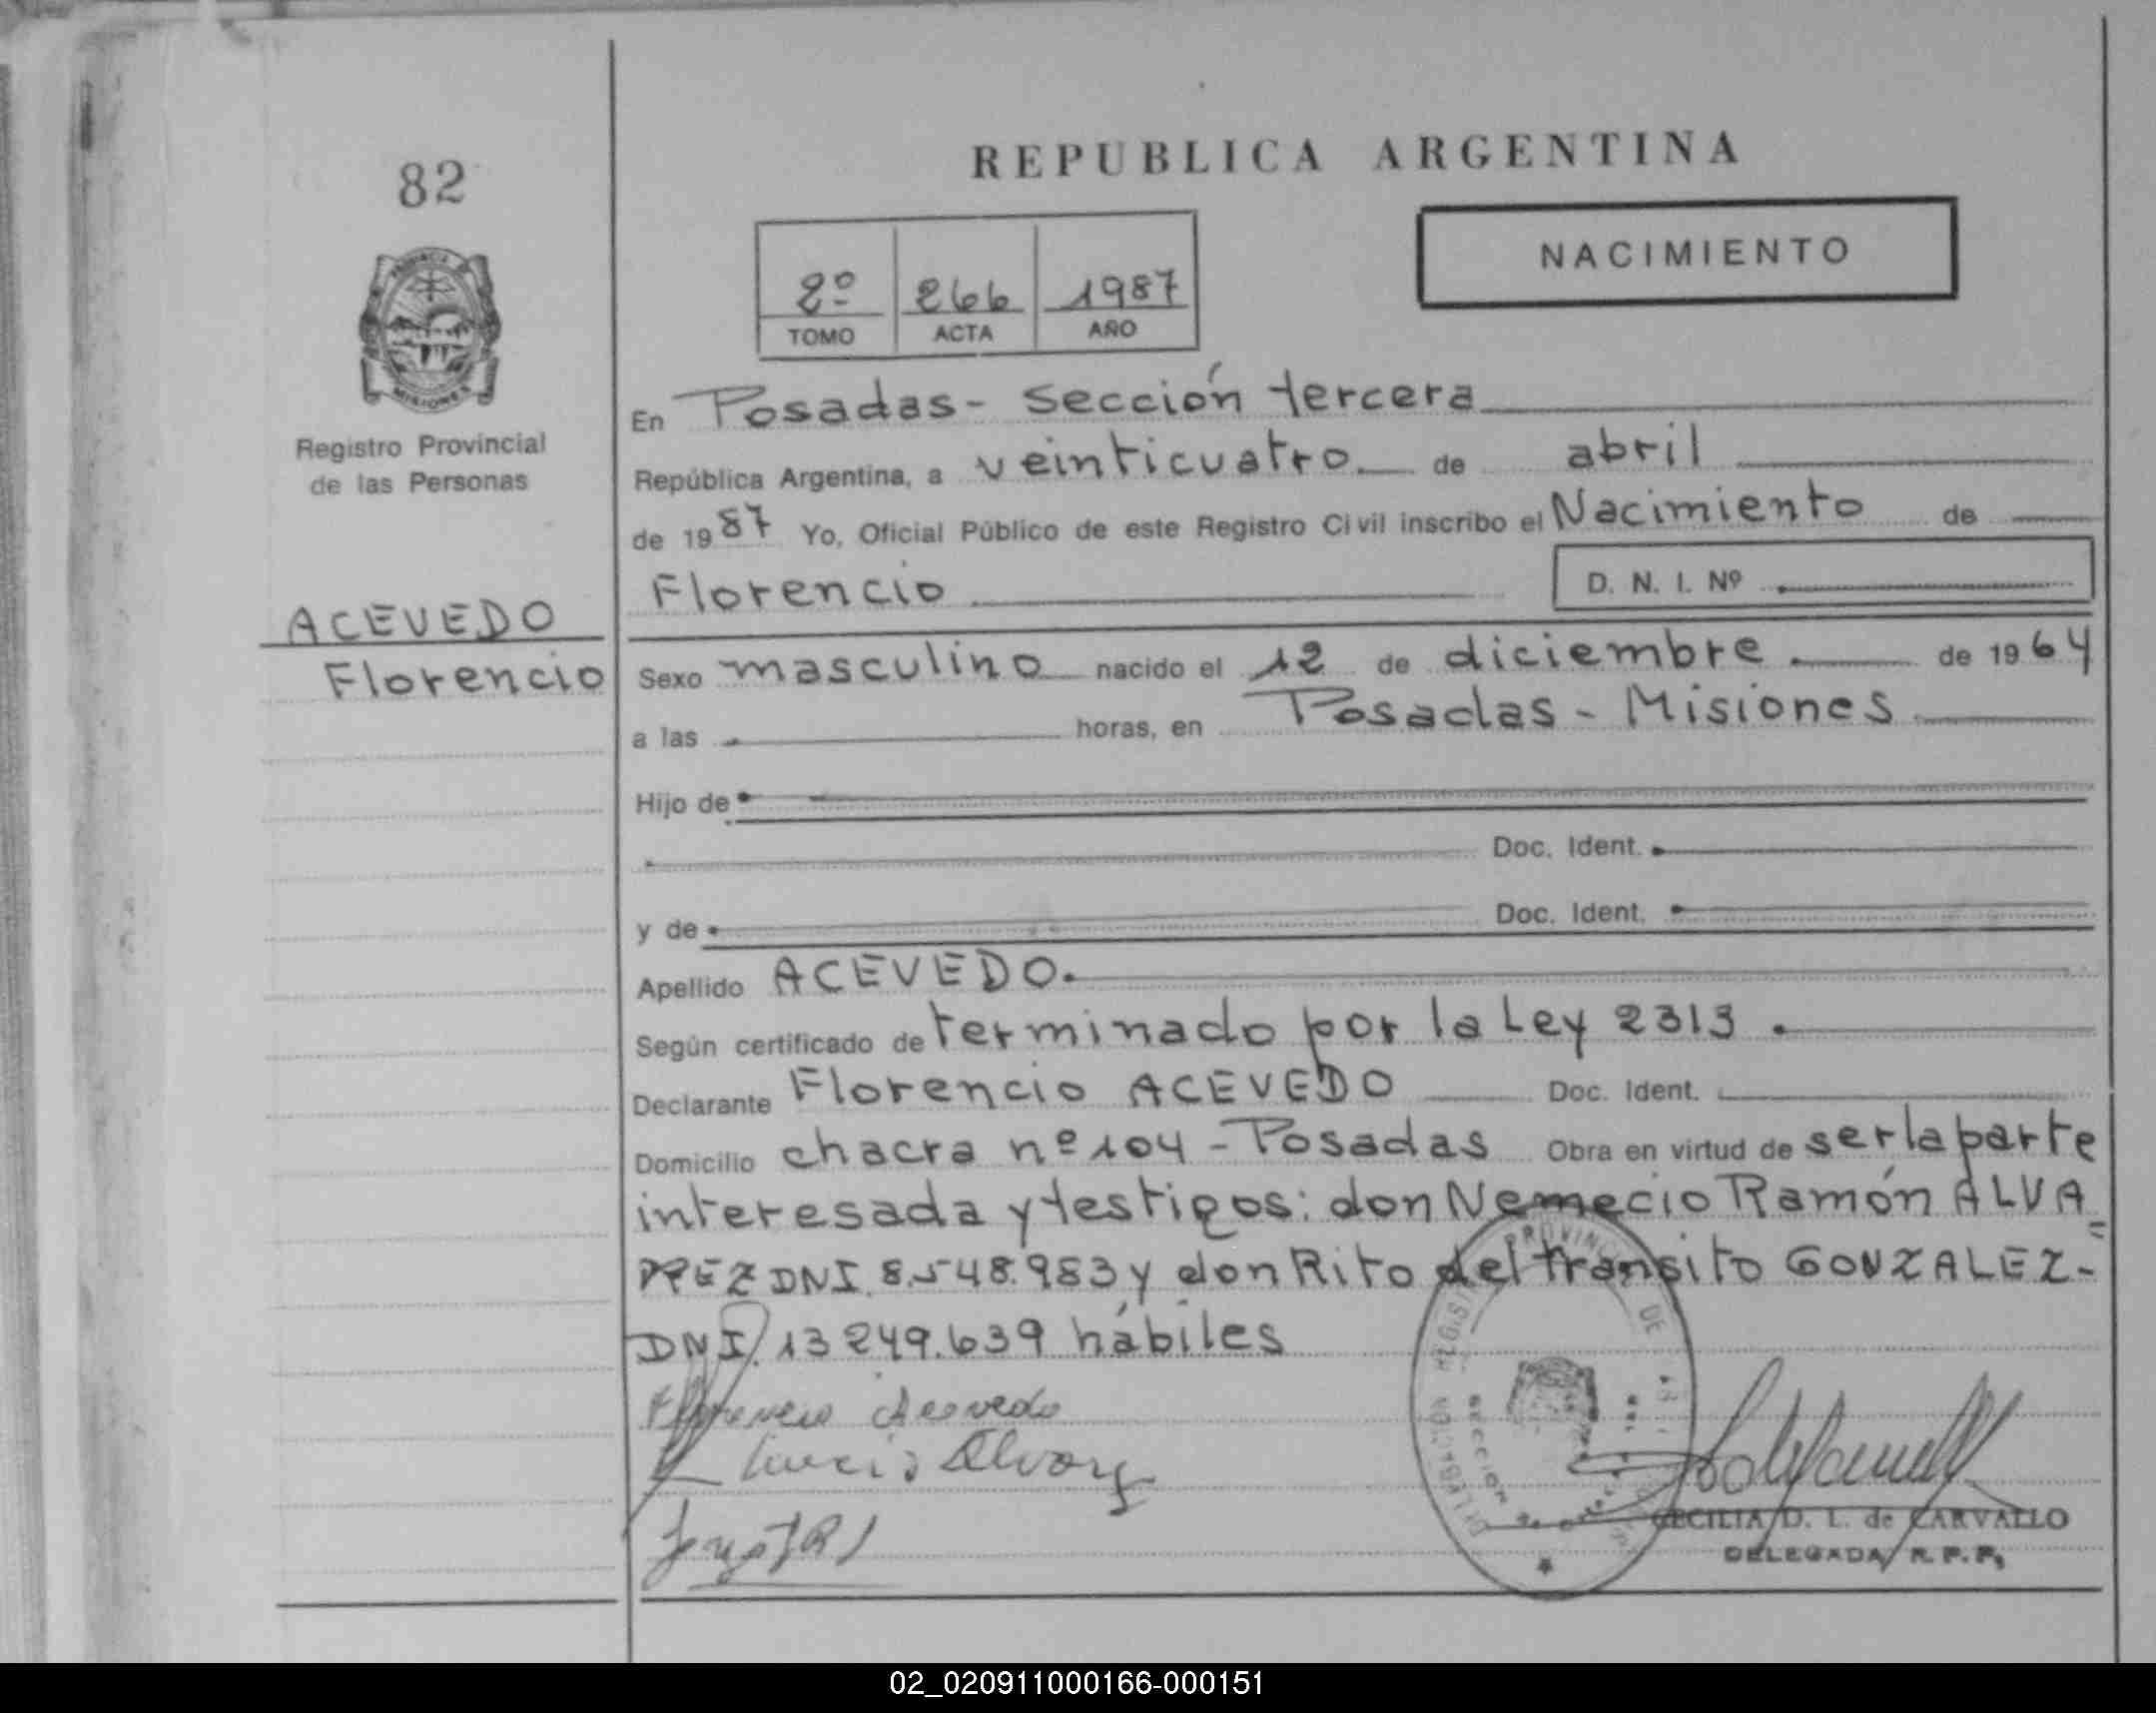 82
REPUBLICA ARGENTINA
NACIMIENTO
2º 266 1987
TOMO ACTA AÑO
MISIONES
Registro Provincial
de las Personas
ACEVEDO
Florencio
En Posadas - sección tercera
República Argentina, a veinticuatro de abril
de 1987 Yo, Oficial Público de este Registro Civil inscribo el Nacimiento de
Florencio D. N. I. Nº
Sexo masculino nacido el 12 de diciembre de 1964
a las horas, en Posadas - Misiones
Hijo de
Doc. Ident.
y de Doc. Ident.
Apellido ACEVEDO.
Según certificado de terminado por la Ley 2313.
Declarante Florencio ACEVEDO Doc. Ident.
Domicilio chacra nº 104 - Posadas Obra en virtud de ser la parte
interesada y testigos: don Nemecio Ramón ALVA=
REZ DNI. 8.548.983 y don Rito del transito GONZALEZ-
DNI. 13249.639 hábiles
Florencio Acevedo
PROVINCIA DE
SECCION
CECILIA D. L. de CARVALLO
DELEGADA R. P. P.
02_020911000166-000151